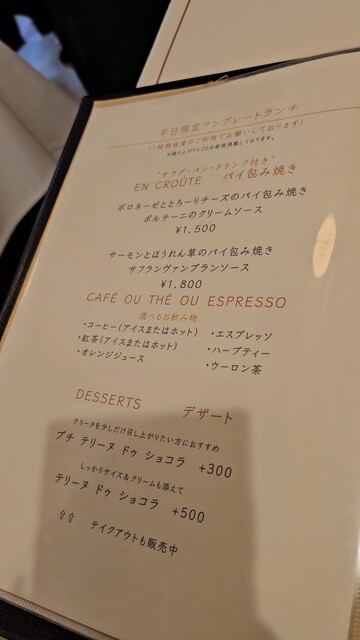 平日限定ワンプレートランチ
(1時間程度のご利用でお願いしております)
※焼き上がりに20分前後頂戴しております。
"サラダ・パン・ドリンク付き"
EN CROÛTE パイ包み焼き
ボロネーゼととろーりチーズのパイ包み焼き
ポルチーニのクリームソース
¥1.500
サーモンとほうれん草のパイ包み焼き
サフランヴァンブランソース
¥1.800
CAFÉ OU THÉ OU ESPRESSO
選べるお飲み物
・コーヒー(アイスまたはホット)
・紅茶(アイスまたはホット)
・オレンジジュース
・エスプレッソ
・ハーブティー
・ウーロン茶
DESSERTS デザート
テリーヌを少しだけ召し上がりたい方におすすめ
プチ テリーヌ ドゥ ショコラ +300
しっかりサイズ&クリームも添えて
テリーヌ ドゥ ショコラ +500
⇧⇧ テイクアウトも販売中